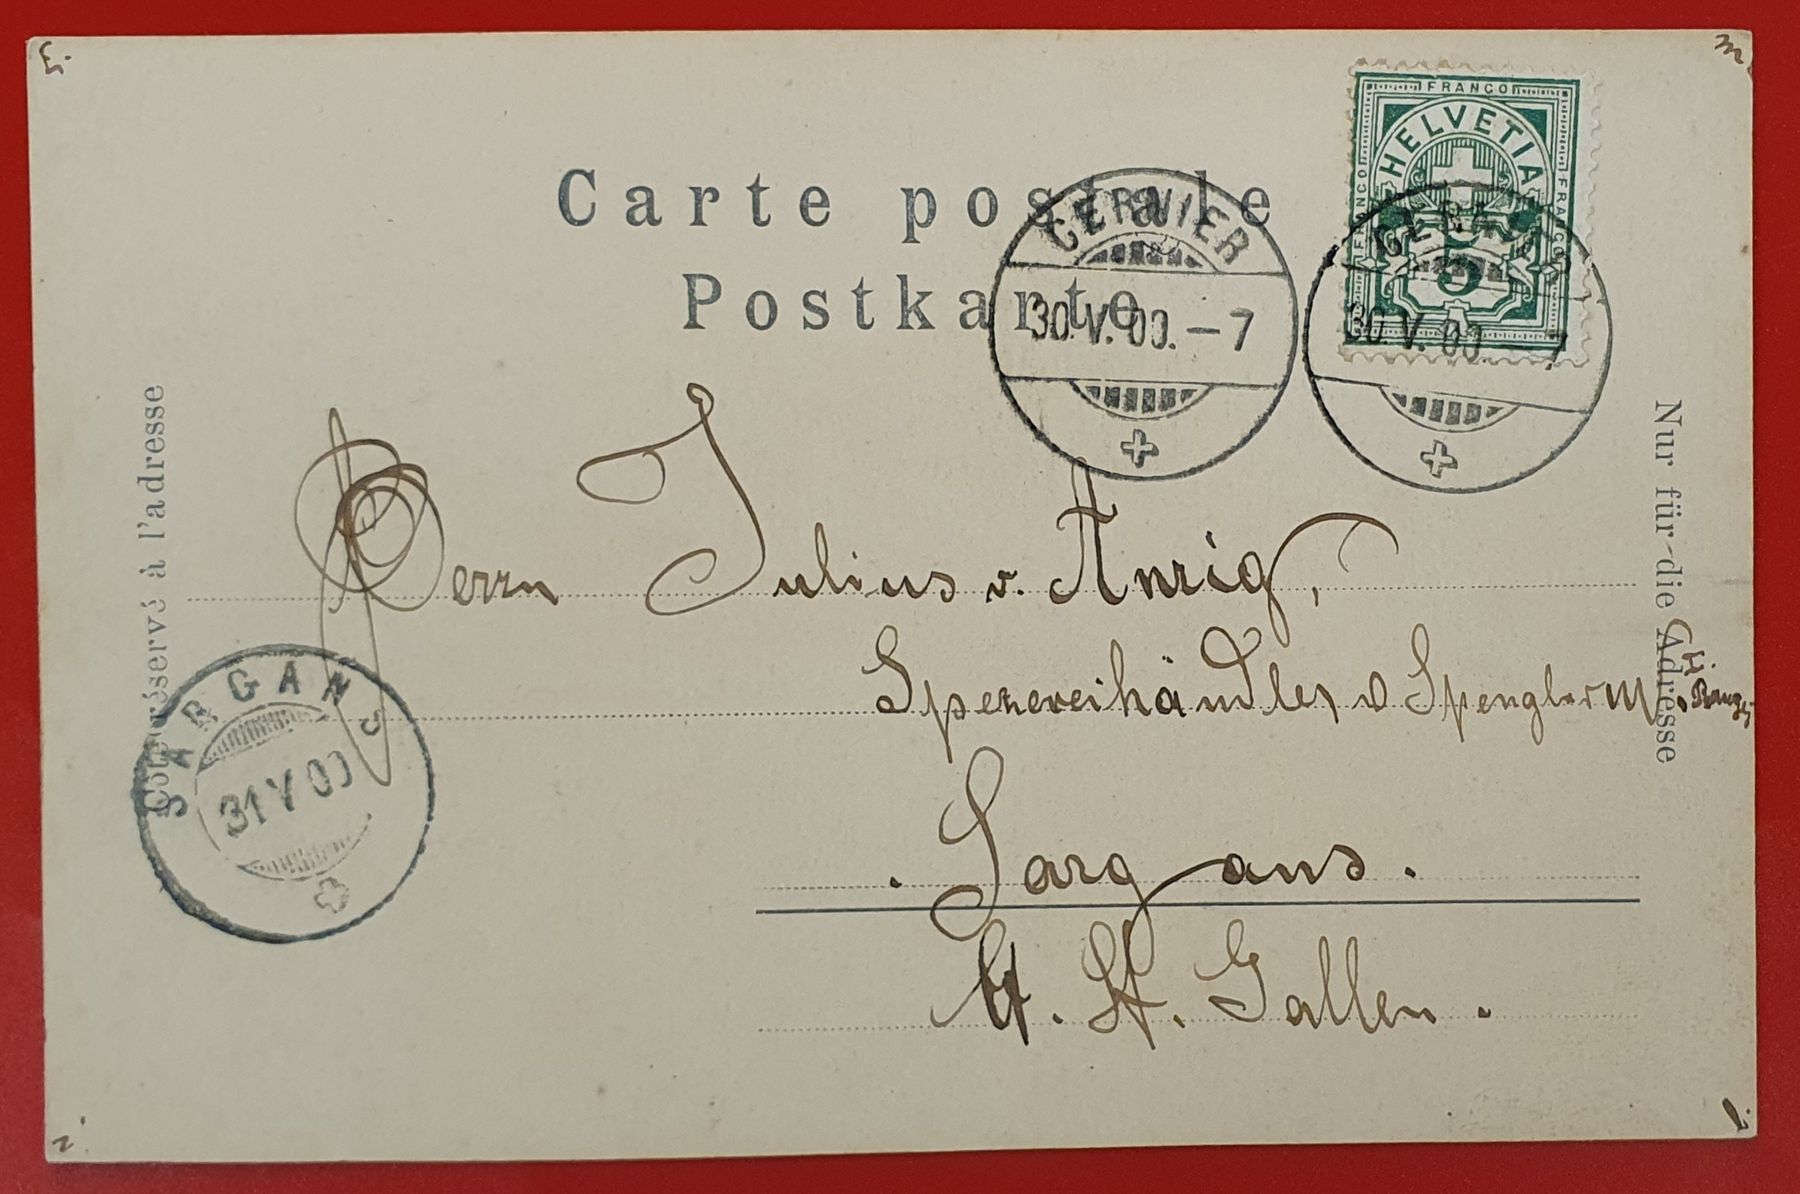 Carte postale
Postkarte
FRANCO
FRANCO
FRANCO
HELVETIA
5
CERNIER
30.V.00.-7
CERNIER
30.V.00.-7
Côté réservé à l'adresse
Nur für die Adresse
Herrn Julius v. Anrig,
Spezereihändler
Sargans.
Kt. St. Gallen.
SARGANS
31 V 00